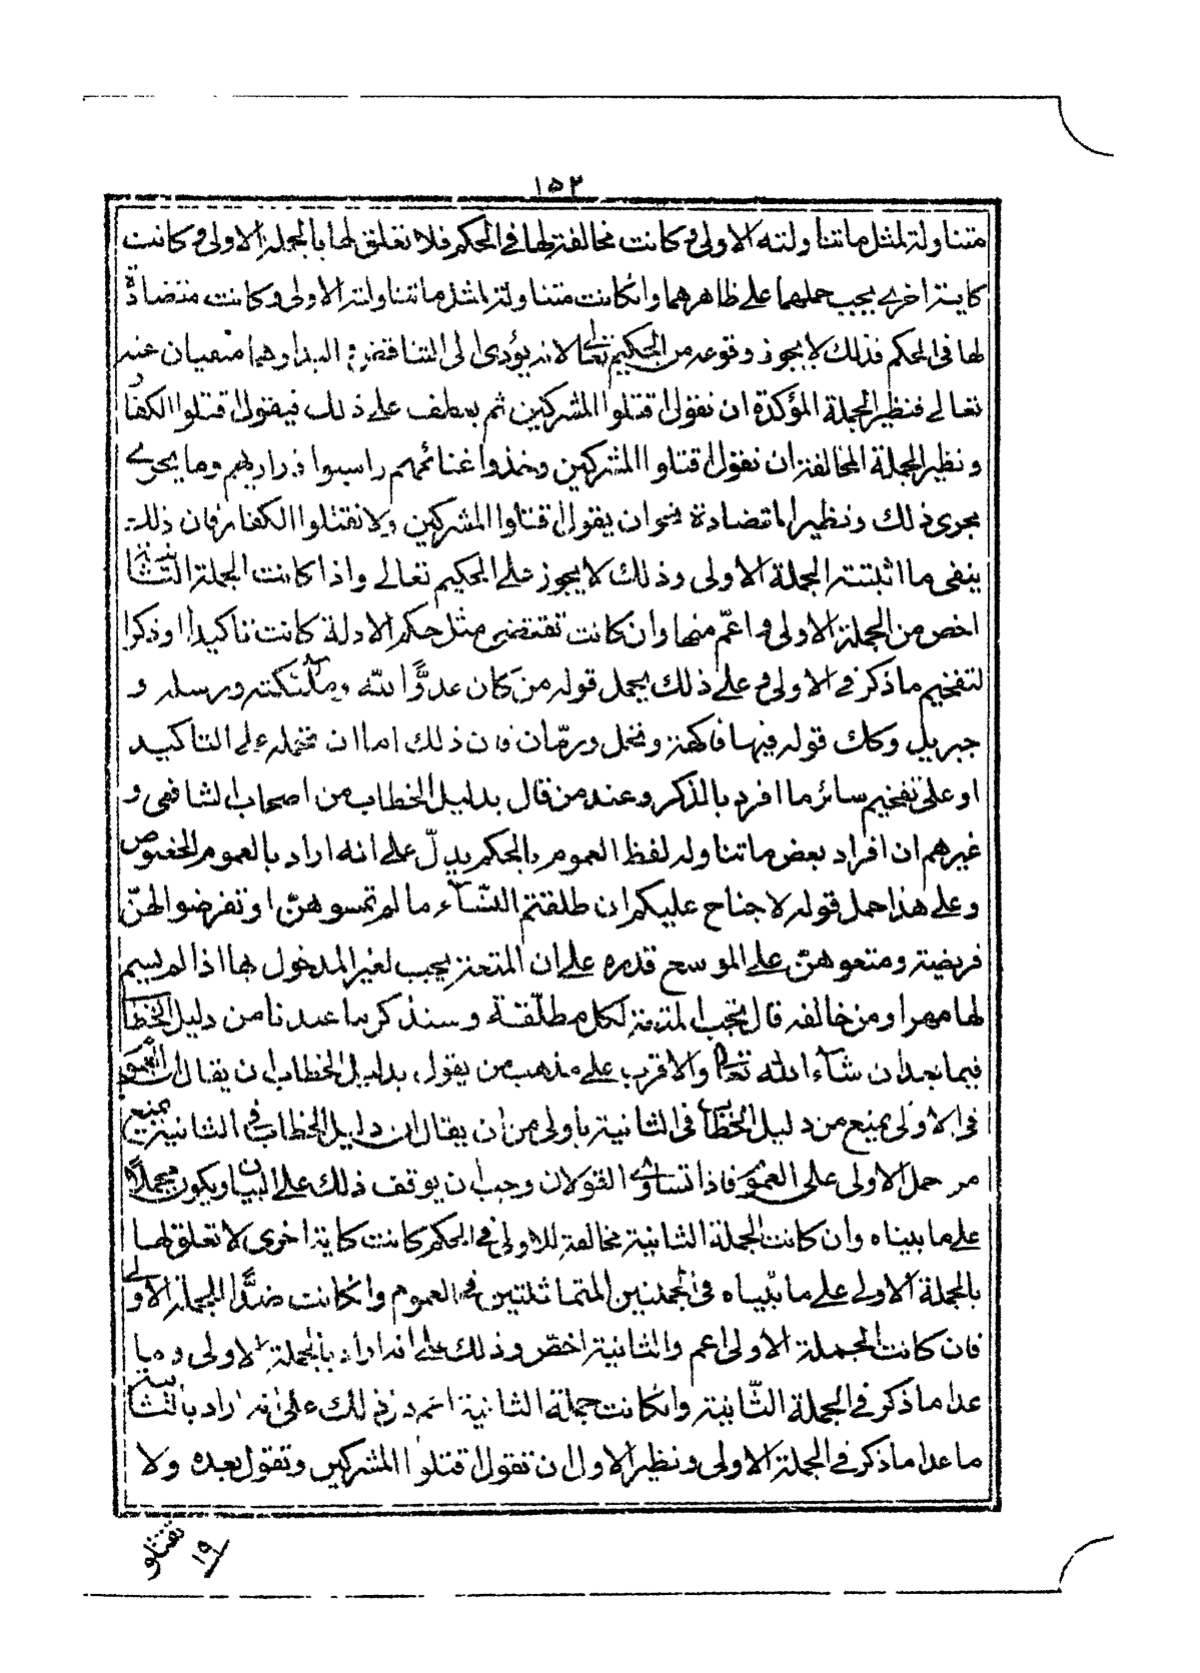 ١٥٣
متناولة لمثل ما تناولته الاولى وكانت مخالفة لها في الحكم فلا تعلق لها بالجملة الاولى وكانت
كاية اخرى يجب حملهما على ظاهرهما وان كانت متناولة لمثل ما تناولته الاولى وكانت متضادة
لها في الحكم فذلك لا يجوز وقوعه من الحكيم تعالى لانه يؤدى الى التناقض و البدا وهما منفيان عنه
تعالى فنظير الجملة المؤكدة ان نقول اقتلوا المشركين ثم يعطف على ذلك فيقول اقتلوا الكفار
ونظير الجملة المخالفة ان نقول اقتلوا المشركين وخذوا غنائمهم واسبوا ذراريهم وما يجرى
مجرى ذلك ونظير المتضادة نحو ان يقول اقتلوا المشركين ولا تقتلوا الكفار فان ذلك
ينفى ما اثبتته الجملة الاولى وذلك لا يجوز على الحكيم تعالى واذا كانت الجملة الثانية
اخص من الجملة الاولى و اعمّ منها وان كانت تقتضى مثل حكم الادلة كانت تاكيدا او ذكرا
لتفخيم ما ذكر في الاولى و على ذلك يحمل قوله من كان عدوًّا لله وملٰئكته ورسله و
جبريل وكك قوله فيها فاكهة ونخل ورمّان فان ذلك اما ان تحمله على التاكيد
او على تفخيم سائر ما افرد بالذكر وعند من قال بدليل الخطاب من اصحاب الشافعى و
غيرهم ان افراد بعض ما تناوله لفظ العموم بالحكم يدلّ على انه اراد بالعموم الخصوص
وعلى هذا حمل قوله لا جناح عليكم ان طلقتم النسّآء ما لم تمسوهنّ او تفرضوا لهنّ
فريضة ومتعوهنّ على الموسع قدره على ان المتعة يجب لغير المدخول بها اذا لم يسم
لها مهرا ومن خالفه قال تجب المتعة لكل مطلّقة وسنذكر ما عندنا من دليل الخطاب
فيما بعد ان شآء الله تعالى والاقرب على مذهب من يقول بدليل الخطاب ان يقال ان العموم
فى الاولى يمنع من دليل الخطاب فى الثانية باولى من ان يقال ان دليل الخطاب فى الثانية يمنع
من حمل الاولى على العموم فاذا تساوى القولان وجب ان يوقف ذلك على البيان ويكون مجملاً
على ما بيناه وان كانت الجملة الثانية مخالفة للاولى في الحكم كانت كاية اخرى لا تعلق لها
بالجملة الاولى على ما بيّناه فى الجملتين المتماثلتين في العموم وان كانت ضدًّا للجملة الاولى
فان كانت الجملة الاولى اعم والثانية اخصّ وذلك على انه اراد بالجملة الاولى و ما
عدا ما ذكر في الجملة الثّانية وان كانت جملة الثانية اعم دل ذلك على انه اراد بالثانية
ما عدا ما ذكر في الجملة الاولى ونظير الاول ان تقول اقتلوا المشركين وتقول بعده ولا
تقتلوا
١٩